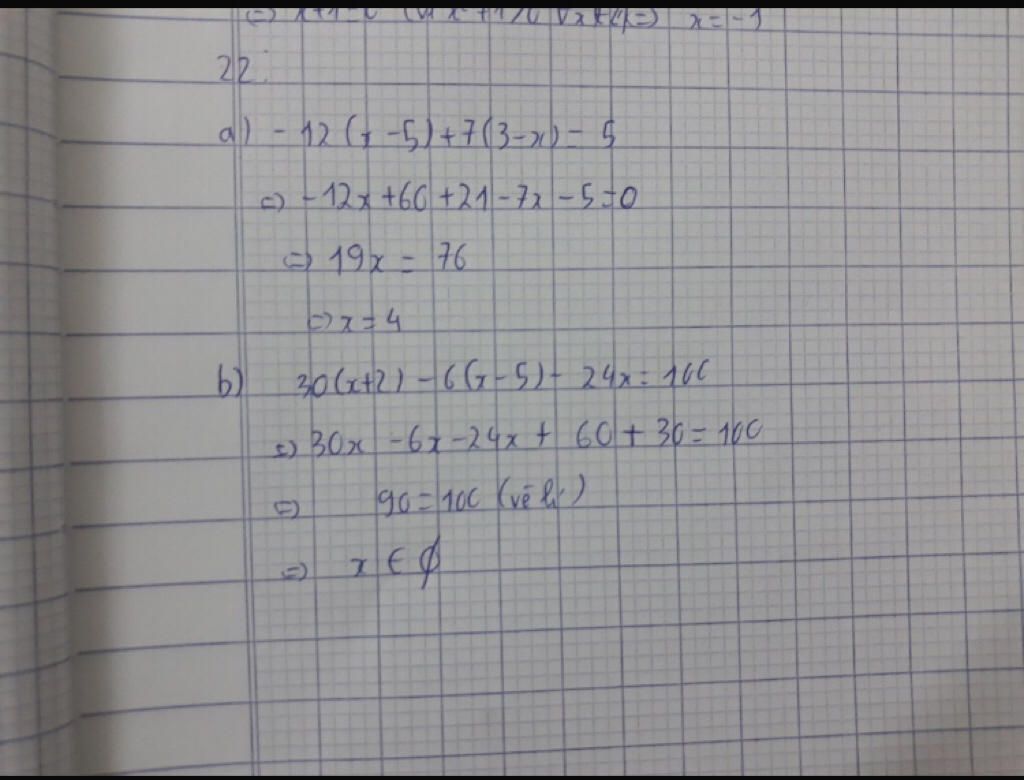 =) x+1=0 =) x=-1
22:
a) -12(x-5)+7(3-x)= 5
=) -12x+60+21-7x-5=0
=) 19x = 76
=) x=4
b) 30(x+2) -6(x-5)- 24x=100
=) 30x -6x-24x+ 60+30=100
=) 90=100 (vô lí)
=) x ∈ ∅